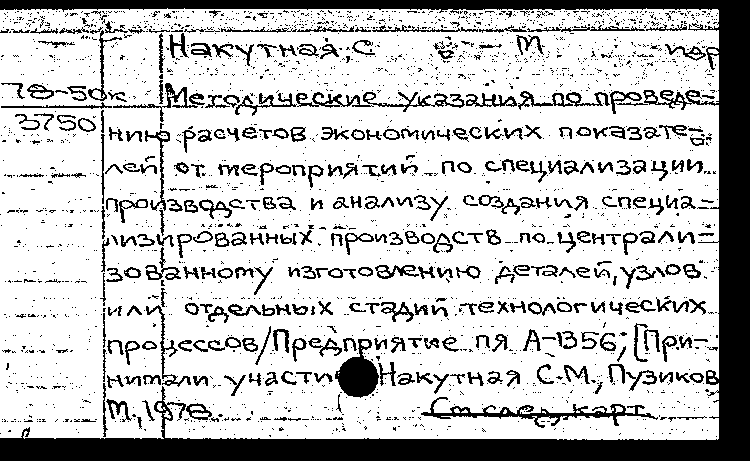 Накутная, С М пар
78-50к Методические указания по проведе-
3750 нию расчетов экономических показате-
лей от мероприятий по специализации
производства и анализу создания специа-
лизированных производств по централи-
зованному изготовлению деталей, узлов
или отдельных стадий технологических
процессов/Предприятие пя А-1356; [При-
нимали участие Накутная С.М., Пузиков
М., 1978. См след карт.